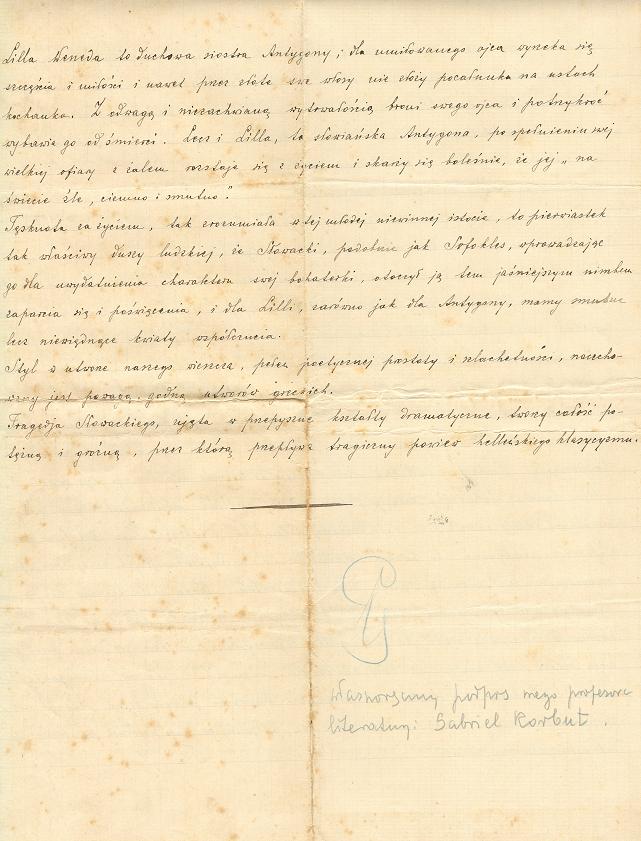 Lilla Weneda to duchowa siostra Antygony; dla umiłowanego ojca wyrzeka się
szczęścia i miłości i nawet przez złote swe włosy nie złoży pocałunku na ustach
kochanka. Z odwagą i niezachwianą wytrwałością broni swego ojca i potrzykroć
wybawia go od śmierci. Lecz i Lilla, ta słowiańska Antygona, po spełnieniu swej
wielkiej ofiary z żalem rozstaje się z życiem i skarży się boleśnie, że jej „na
świecie źle, ciemno i smutno".
Tęsknota za życiem, tak zrozumiała w tej młodej niewinnej istocie, to pierwiastek
tak właściwy duszy ludzkiej, że Słowacki, podobnie jak Sofokles, wprowadzając
go dla uwydatnienia charakteru swej bohaterki, otoczył ją tem jaśniejszym nimbem
zaparcia się i poświęcenia, i dla Lilli, zarówno jak dla Antygony, mamy smutne
lecz niewiędnące kwiaty współczucia.
Styl w utworze naszego wieszcza, pełen poetycznej prostoty i szlachetności, nacecho-
wany jest powagą, godną utworów greckich.
Tragedja Słowackiego, ujęta w przepyszne kształty dramatyczne, tworzy całość po-
tężną i groźną, przez którą przepływa tragiczny powiew helleńskiego klasycyzmu.
Własnoręczny podpis mego profesora
literatury: Gabriel Korbut.